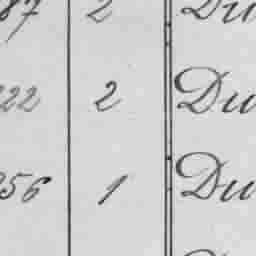 87 2 Du
222 2 Du
256 1 Du